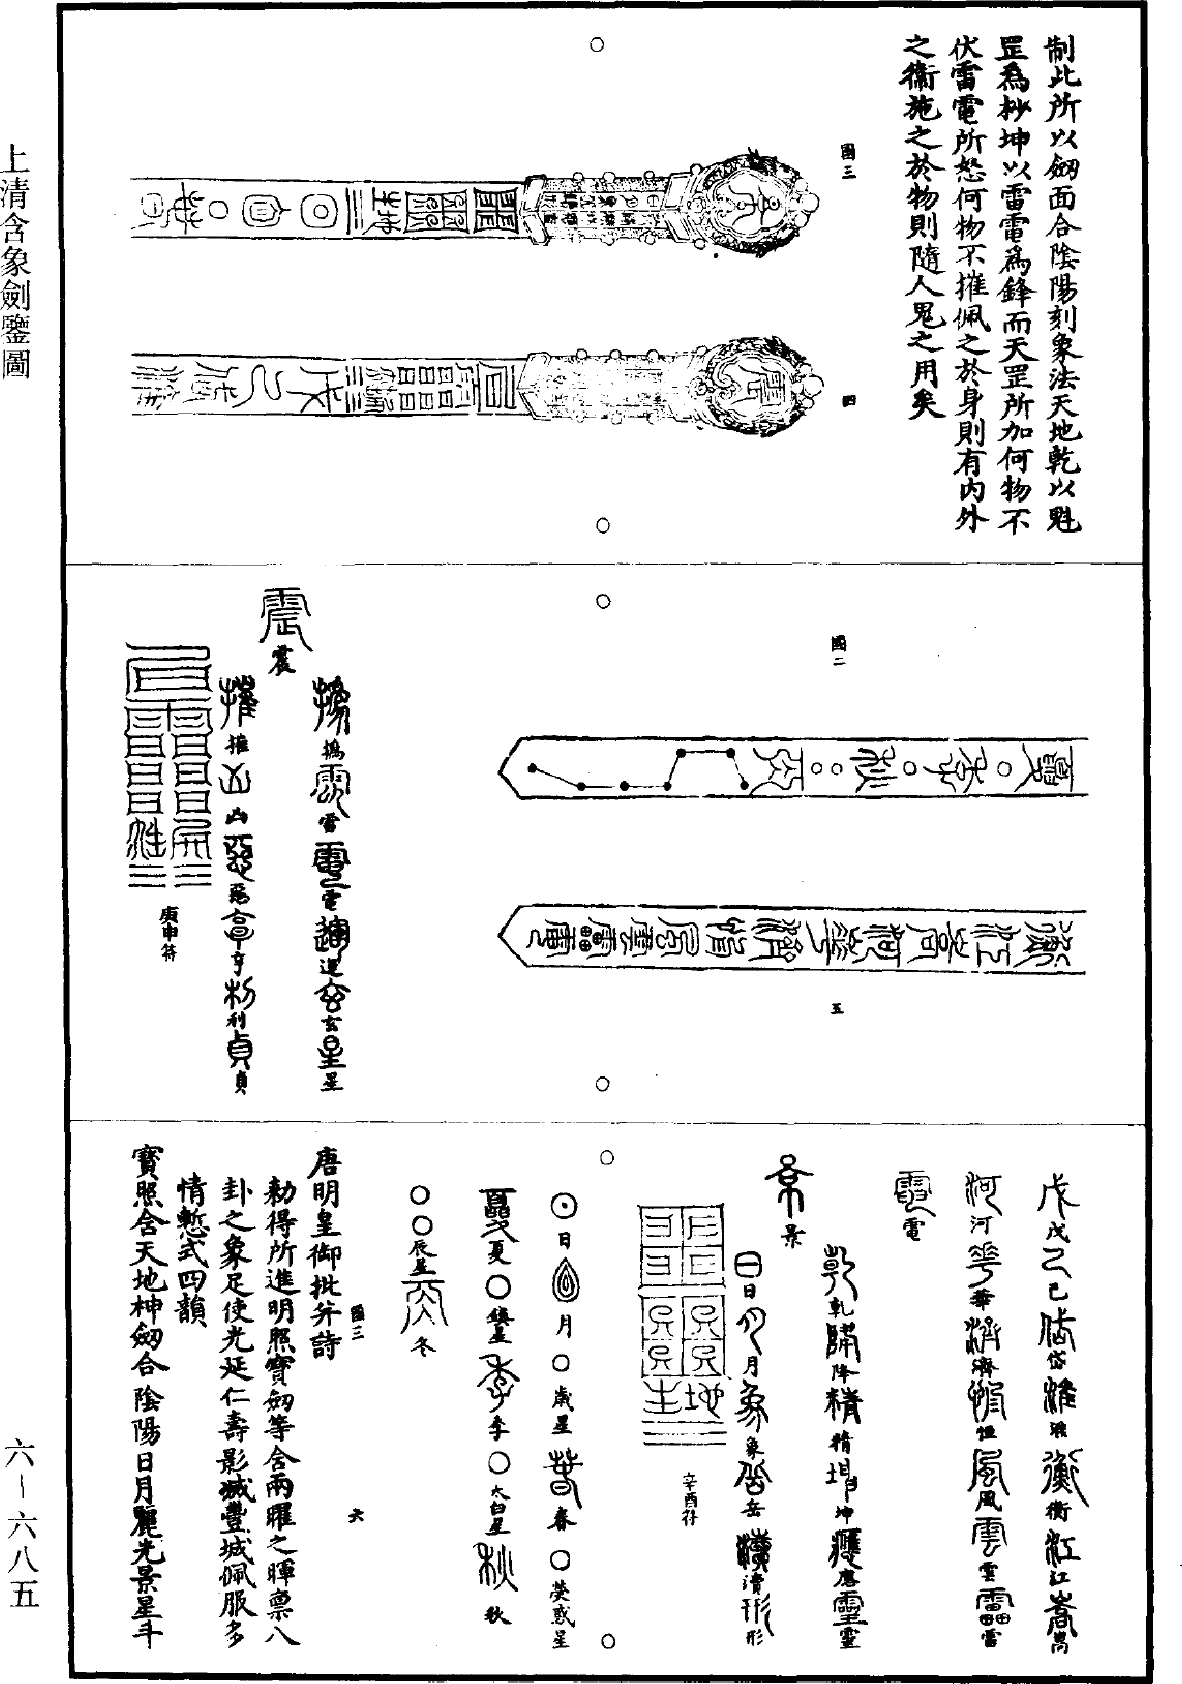 上清含象劍鑒圖
六－六八五
制此所以劒面合陰陽刻象法天地乾以魁
罡為杪坤以雷電為鋒而天罡所加何物不
伏雷電所怒何物不摧佩之於身則有內外
之衛施之於物則隨人鬼之用矣
圖三
四
圖二
五
撝雷電運玄星
震
摧凶惡亨利貞
庚申符
戊己岱淮衡江嵩
河華濟恒風雲雷
電
乾降精坤應靈
景
日月象岳瀆形
辛酉符
日月歲星春熒惑星
夏鎮星季太白星秋
辰星冬
圖三
六
唐明皇御批并詩
勑得所進明照寶劒等含兩曜之暉禀八
卦之象足使光延仁壽影滅豐城佩服多
情慙式四韻
寶照含天地神劒合陰陽日月麗光景星斗